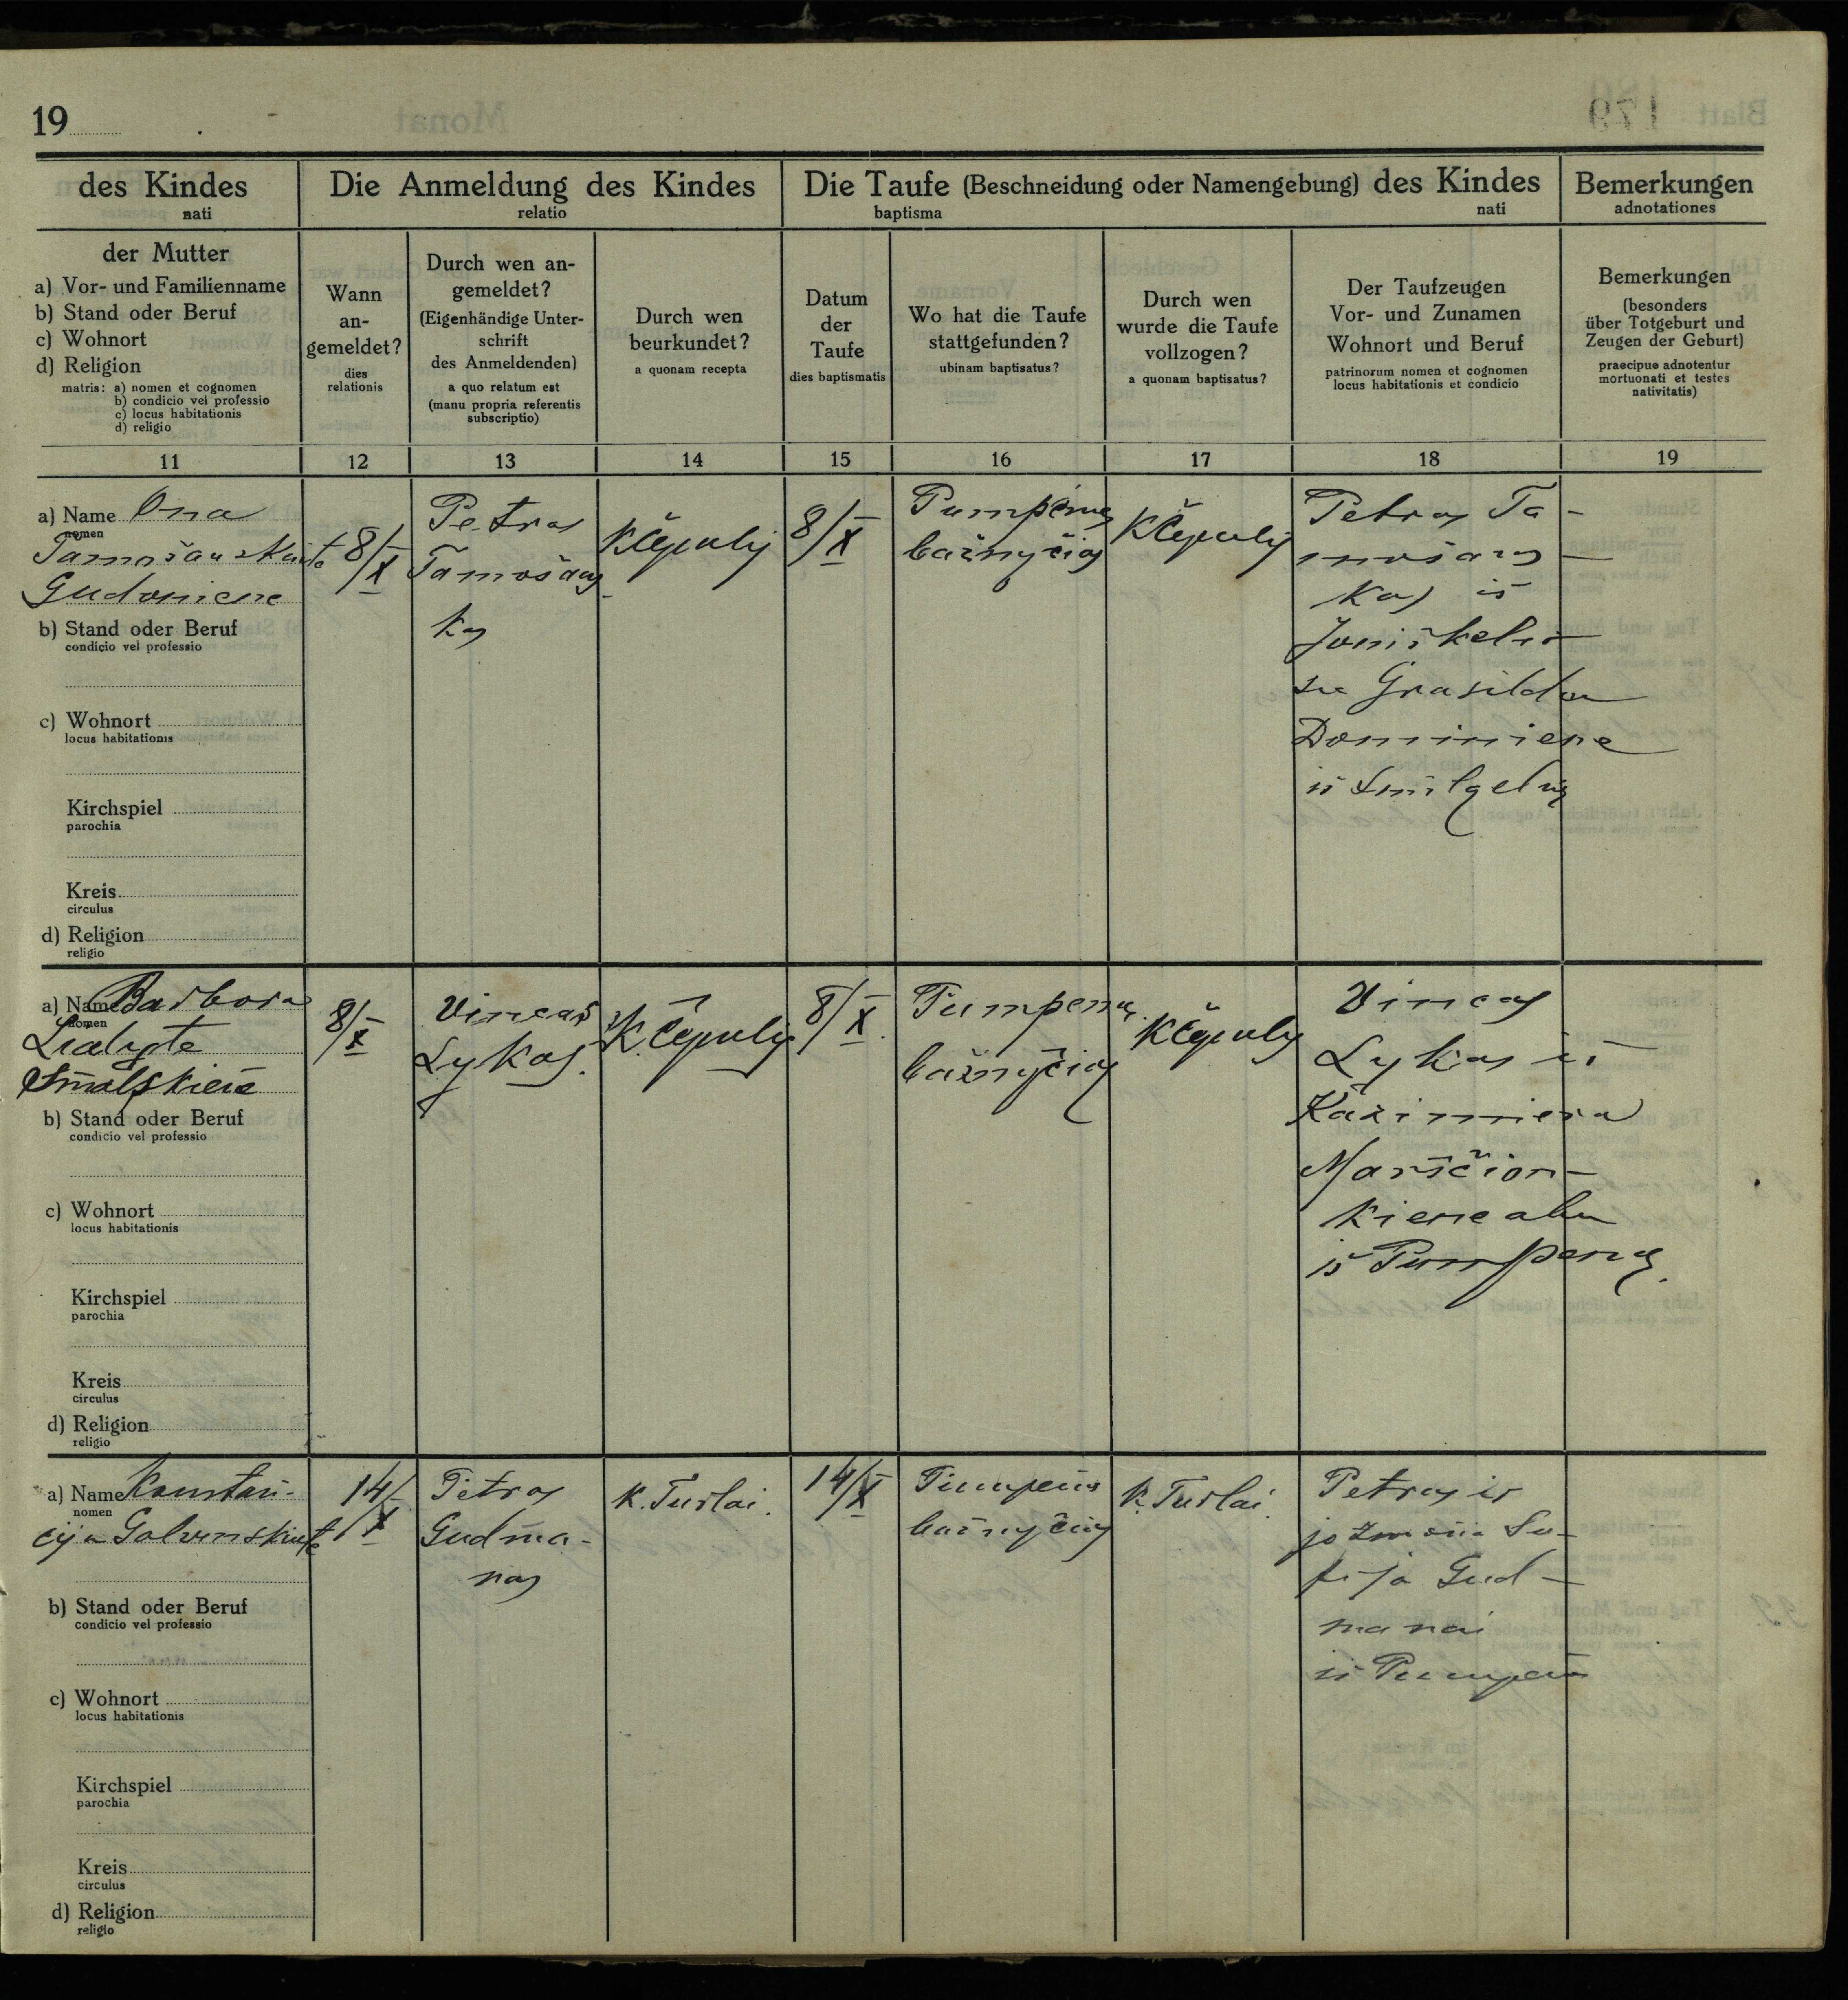 19
des Kindes
nati
Die Anmeldung des Kindes
relatio
Die Taufe (Beschneidung oder Namengebung) des Kindes
baptisma nati
Bemerkungen
adnotationes
der Mutter
a) Vor- und Familienname
b) Stand oder Beruf
c) Wohnort
d) Religion
matris: a) nomen et cognomen
b) condicio vel professio
c) locus habitationis
d) religio
Wann
an-
gemeldet?
dies
relationis
Durch wen an-
gemeldet?
(Eigenhändige Unter-
schrift
des Anmeldenden)
a quo relatum est
(manu propria referentis
subscriptio)
Durch wen
beurkundet?
a quonam recepta
Datum
der
Taufe
dies baptismatis
Wo hat die Taufe
stattgefunden?
ubinam baptisatus?
Durch wen
wurde die Taufe
vollzogen?
a quonam baptisatus?
Der Taufzeugen
Vor- und Zunamen
Wohnort und Beruf
patrinorum nomen et cognomen
locus habitationis et condicio
Bemerkungen
(besonders
über Totgeburt und
Zeugen der Geburt)
praecipue adnotentur
mortuonati et testes
nativitatis)
11 12 13 14 15 16 17 18 19
a) Name Ona
nomen
Tamošauskaite
Gudoniene
b) Stand oder Beruf
condicio vel professio
c) Wohnort
locus habitationis
Kirchspiel
parochia
Kreis
circulus
d) Religion
religio
8/X
Petras
Tamošaus-
kas
K Čepulis
8/X
Pumpėnų
bažnyčioj
K Čepulis
Petras Ta-
mošaus-
kas iš
Joniškelio
su Grasilda
Dominiene
iš Smilgelių
a) Name Barbora
nomen
Smalskiene
b) Stand oder Beruf
condicio vel professio
c) Wohnort
locus habitationis
Kirchspiel
parochia
Kreis
circulus
d) Religion
religio
8/X
Vincas
Lykas.
K. Čepulis
8/X
Pumpėnų
bažnyčioj
K Čepulis
Vincas
Lykas ir
Kazimiera
Marščion-
kiene abu
iš Pumpenų.
a) Name Konstan-
nomen
cija Galvenskiute
b) Stand oder Beruf
condicio vel professio
c) Wohnort
locus habitationis
Kirchspiel
parochia
Kreis
circulus
d) Religion
religio
14/X
Petras
Gudma-
nas
K. Turlai.
14/X
Pumpėnų
bažnyčioj
K. Turlai.
Petras ir
jo žmona So-
fija Gud-
manai
iš Pumpėnų